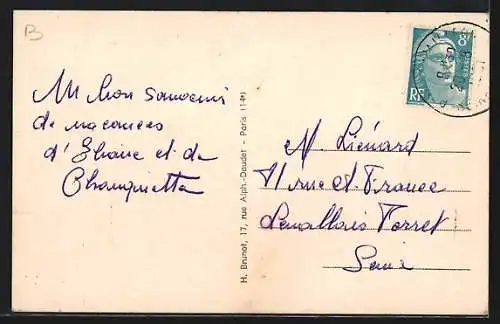 B
Un bon souvenir
de vacances
d'Eliane et de
H. Brunot, 17, rue Alph.-Daudet - Paris (14e)
8F
RF
M. Liénard
11 rue A. France
Levallois Perret
Seine